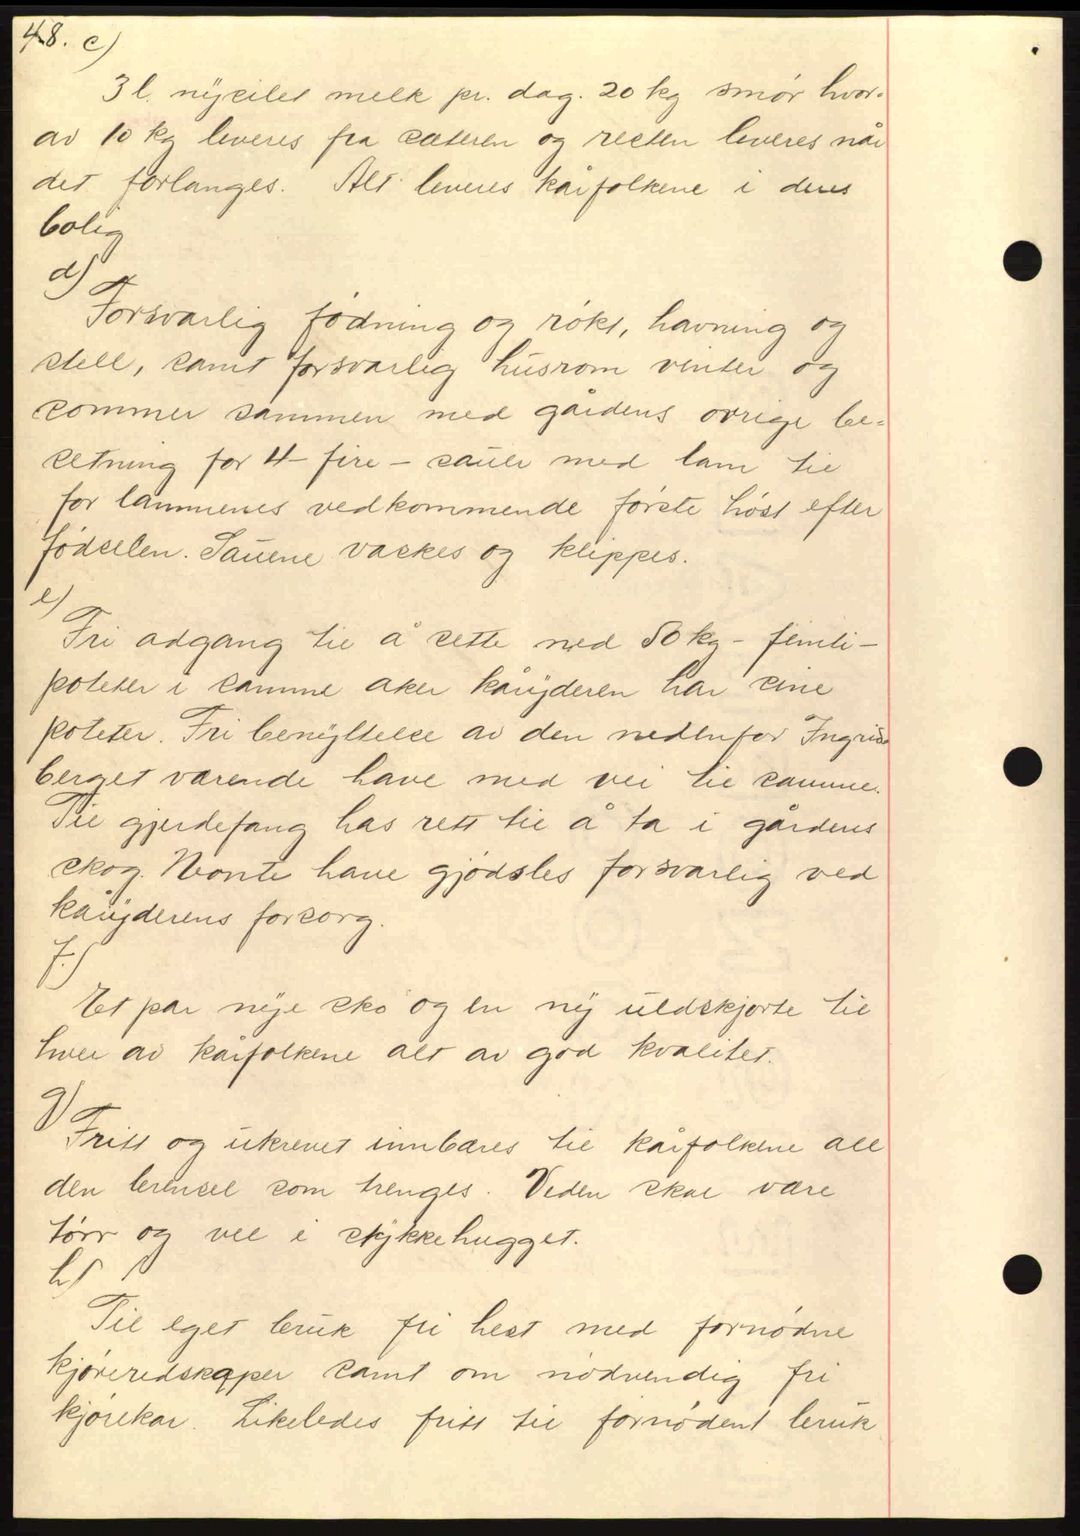 48. c)
3 l. nysilet melk pr. dag. 20 kg smør hvor-
av 10 kg leveres fra sæteren og resten leveres når
det forlanges. Alt leveres kårfolkene i deres
bolig
d)
Forsvarlig fødning og røkt, havning og
stell, samt forsvarlig husrom vinter og
sommer sammen med gårdens øvrige be=
setning for 4 - fire - sauer med lam til
for lammenes vedkommende første høst efter
fødselen. Sauene vaskes og klippes.
e)
Fri adgang til å sette ned 50 kg - femti -
poteter i samme aker kåryderen har sine
poteter. Fri benyttelse av den nedenfor Ingrids
berget værende have med vei til samme.
Til gjerdefang has rett til å ta i gårdens
skog. Nevnte have gjødsles forsvarlig ved
kåryderens forsorg.
f.)
Et par nye sko og en ny uldskjorte til
hver av kårfolkene alt av god kvalitet.
g)
Fritt og ukrevet innbæres til kårfolkene all
den brensel som trenges. Veden skal være
tørr og vel i stykkehugget.
h)
Til eget bruk fri hest med fornødne
kjøreredskaper samt om nødvendig fri
kjørekar. Likeledes fritt til fornødent bruk